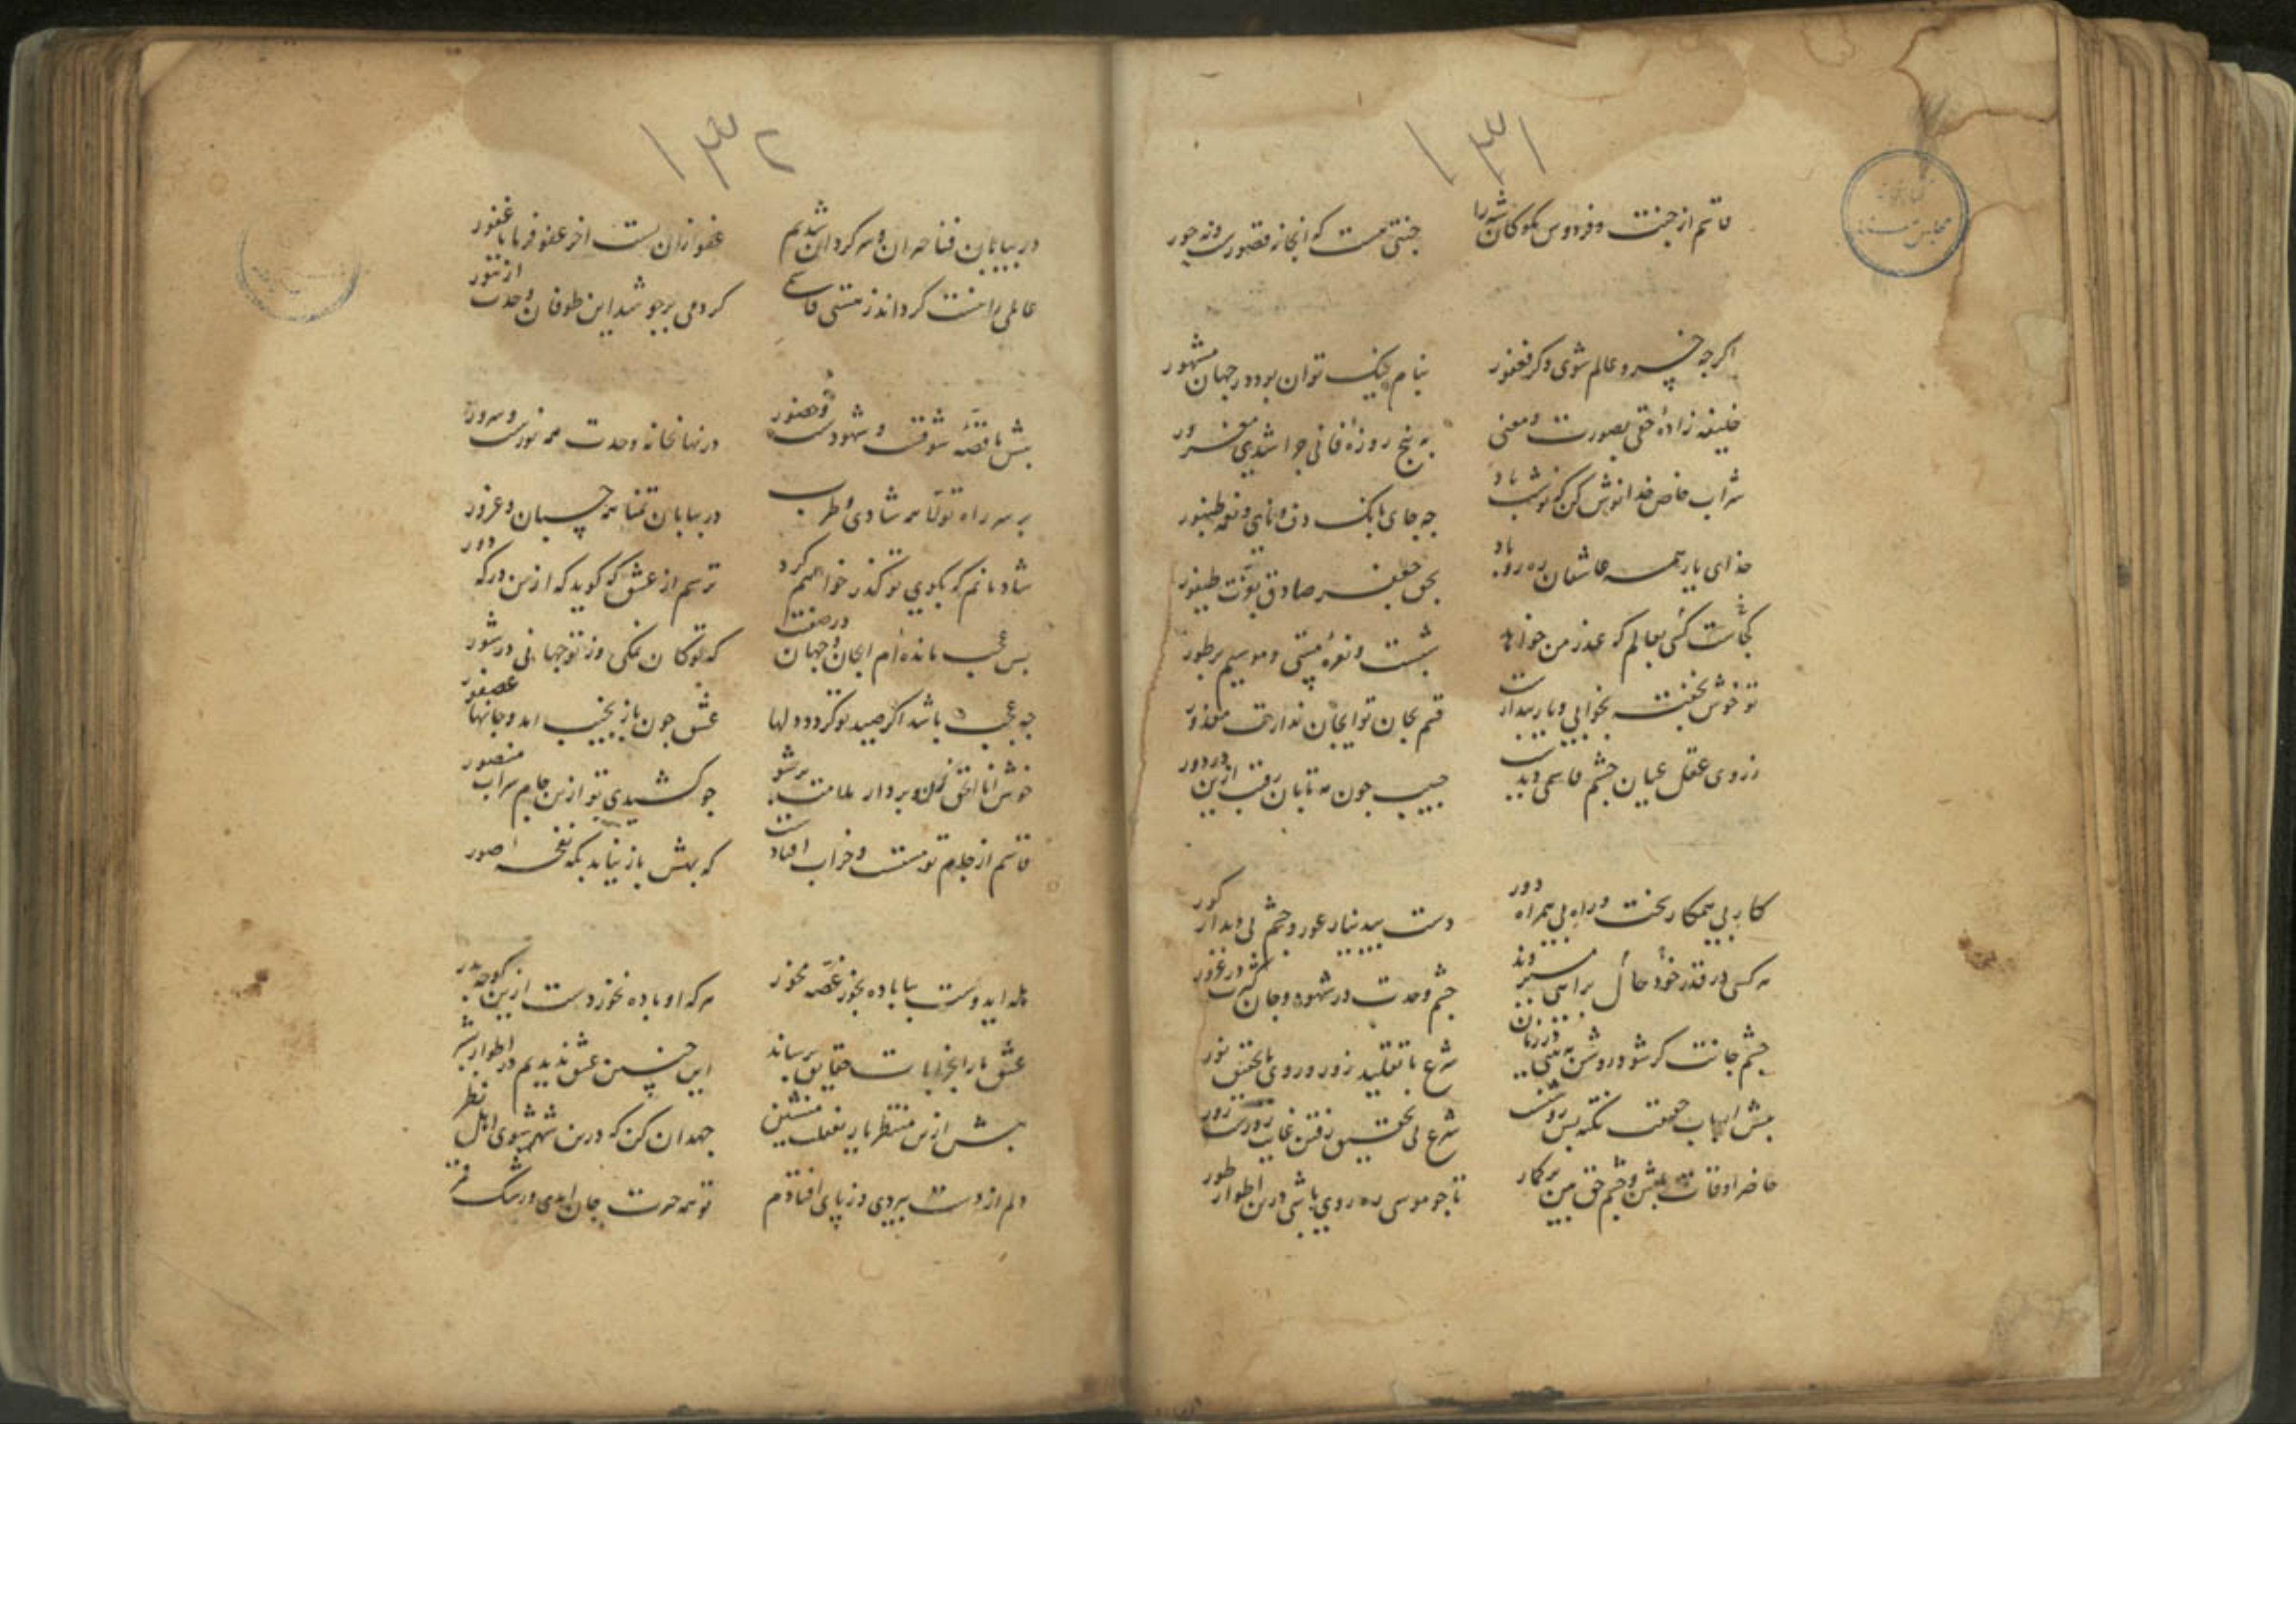 ۱۳۱
قاسم از جنت و فردوس مکو کاشه را
جنتی هست که انجا نه قصورست و نه حور
اگر چه خسرو عالم شوی وگر فغفور
بنام نیک توان بود در جهان مشهور
خلیفه زادهٔ حقی بصورت و معنی
به پنج روزهٔ فانی چرا شدی مغرور
شراب خاص خدا نوش کن که نوشت باد
چه جای بانک دف و نای و نغمه طنبور
خدای یار همه عاشقان ره رو باد
بحق جعفر صادق بقوت طیفور
کجاست کسی بعالم که عذر من خواهد
شبست و نعره مستی و موسیم بر طور
تو خوش بخفته بخوابی و یار بیدارست
قسم بجان تو ای جان ندارمت معذور
ز روی عقل عیان چشم قاسمی دیدست
حبیب چون مه تابان رقیب ازین در دور
کار بی همکار سخت و راه بی همراه دور
دست بی دینار عور و چشم بی دیدار کور
هر کسی در قدر خود حال براهی میروند
چشم وحدت در شهود و جان کثرت در غرور
چشم جانت گر شود روشن به بینی در زمان
شرع با تقلید زور و روی با تحقیق نور
پیش ارباب حقیقت نکته بس روشنست
شرع بی تحقیق رفتن غایب زورست زور
حاضر اوقات باش و چشم حق بین بر کمار
تا چو موسی ره روی باشی درین اطوار طور
۱۳۲
در بیابان فنا حیران و سرکردان شدیم
عفو از آن تست اخر عفو فرما یا غفور
عالمی را مست کرداند ز مستی قاسمی
کر دمی برجوشد این طوفان وحدت از تنور
پیش ما قصهٔ شوقست و شهودست و حضور
در نهانخانه وحدت همه نورست و سرور
بر سر راه تولا همه شادی و طرب
در بیابان تمنا همه حسبان و غرور
شادمانم که بکوی تو گذر خواهم کرد
ترسم از عشق که کوید که ازین در که دور
بس عجب مانده‌ام ای جان و جهان در صفتت
که تو کان نمکی وز تو جهانی در شور
چه عجب باشد اگر صید تو کردد دلها
عشق چون باز نجیب امد و جانها عصفور
خوش انا الحق زن و بردار ملامت بر شو
چو کشیدی تو ازین جام شراب منصور
قاسم از جام تو مست و خراب افتادست
که بهش باز نیاید بکه نفخه صور
هله ایدوست بیا باده بخور غصه مخور
هر که او باده نخورد دست ازین کوچه بدر
عشق ما را بخرابات حقایق برساند
این چنین عشق ندیدیم در اطوار بشر
بیش ازین منتظر یار بغفلت منشین
جهد ان کن که درین شهر شوی اهل نظر
دلم از دست ببردی و ز پای افتادم